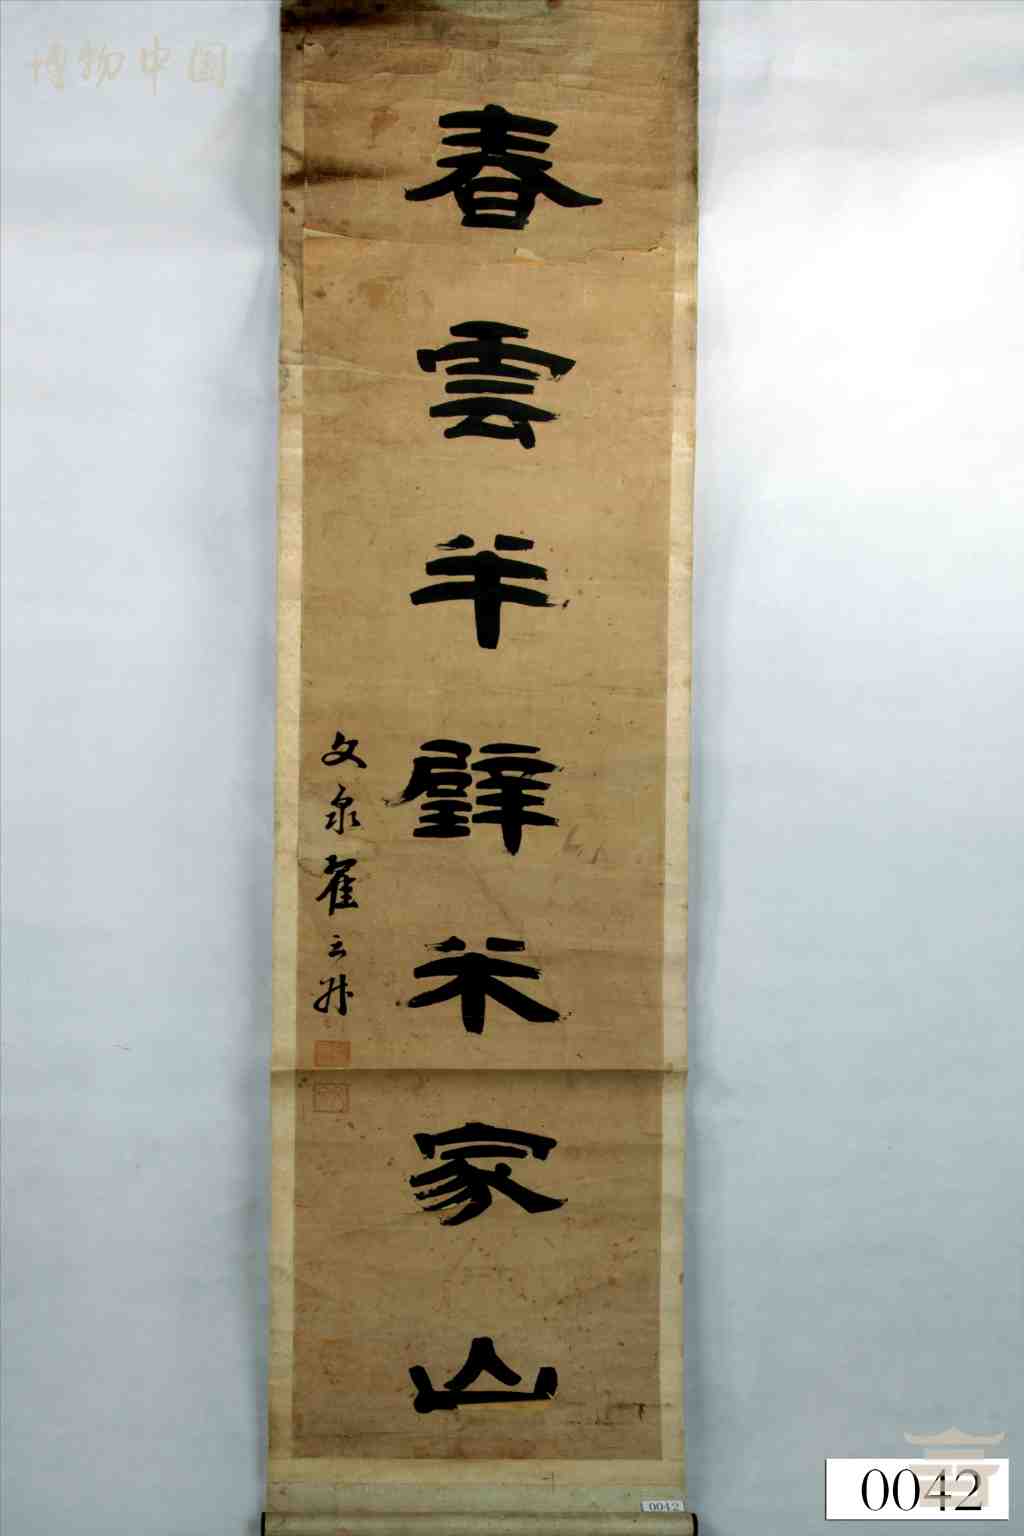 春雲半壁米家山
文泉翟云升
博物中国
0042
0042